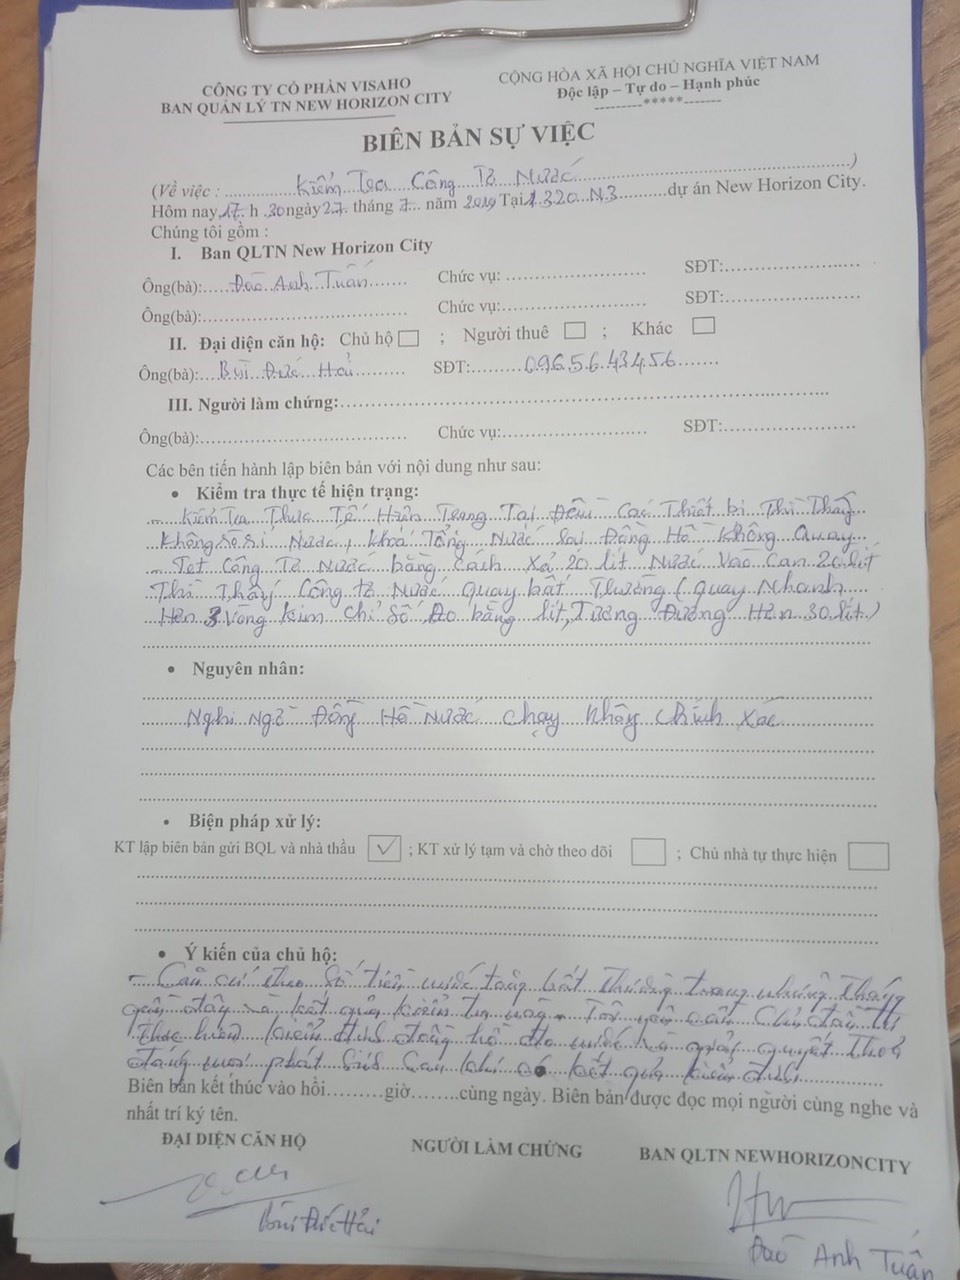 CÔNG TY CỔ PHẦN VISAHO
BAN QUẢN LÝ TN NEW HORIZON CITY
CỘNG HÒA XÃ HỘI CHỦ NGHĨA VIỆT NAM
Độc lập – Tự do – Hạnh phúc
---------*****-------
BIÊN BẢN SỰ VIỆC
(Về việc : Kiểm Tra Công Tơ Nước)
Hôm nay, 17 h 30 ngày 27 tháng 7 năm 2019 Tại 1320 N3 dự án New Horizon City.
Chúng tôi gồm :
I. Ban QLTN New Horizon City
Ông(bà): Đào Anh Tuấn Chức vụ: SĐT:
Ông(bà): Chức vụ: SĐT:
II. Đại diện căn hộ: Chủ hộ ☐ ; Người thuê ☐ ; Khác ☐
Ông(bà): Bùi Đức Hải SĐT: 0965643456
III. Người làm chứng:
Ông(bà): Chức vụ: SĐT:
Các bên tiến hành lập biên bản với nội dung như sau:
• Kiểm tra thực tế hiện trạng:
- Kiểm Tra Thực Tế Hiện Trạng Tại Các Thiết bị Thì Thấy
Không Nước, Khoá Tổng Nước Sau Đồng Hồ Không Quay
- Test Công Tơ Nước bằng Cách Xả 20 lít Nước Vào Can 20 lít
Thì Thấy Công tơ Nước Quay bất Thường (Quay Nhanh
Hơn 3 Vòng kim Chỉ Số Đo bằng lít, Tương Đương Hơn 30 lít)
• Nguyên nhân:
Nghi Ngờ Đồng Hồ Nước Chạy Không Chính Xác
• Biện pháp xử lý:
KT lập biên bản gửi BQL và nhà thầu ☑ ; KT xử lý tạm và chờ theo dõi ☐ ; Chủ nhà tự thực hiện ☐
• Ý kiến của chủ hộ:
- Căn cứ theo số tiền nước tăng bất thường trong những tháng
gần đây và kết quả kiểm tra này. Tôi yêu cầu Chủ đầu tư
thực hiện kiểm định đồng hồ đo nước và giải quyết thoả
đáng mọi phát sinh sau khi có kết quả kiểm định
Biên bản kết thúc vào hồi.........giờ........cùng ngày. Biên bản được đọc mọi người cùng nghe và
nhất trí ký tên.
ĐẠI DIỆN CĂN HỘ NGƯỜI LÀM CHỨNG BAN QLTN NEWHORIZONCITY
Bùi Đức Hải
Đào Anh Tuấn